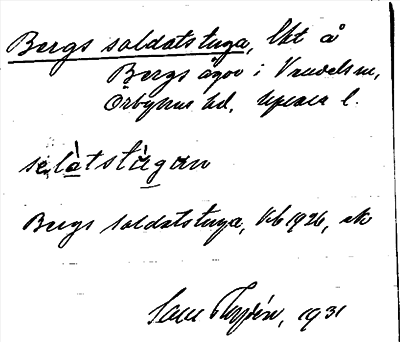 Bergs soldatstuga, lht å
Bergs ägor i Vendels sn,
Örbyhus hd, Uppsala l.
se,làtstùgan
Bergs soldatstuga, Kb 1926, ek
1931